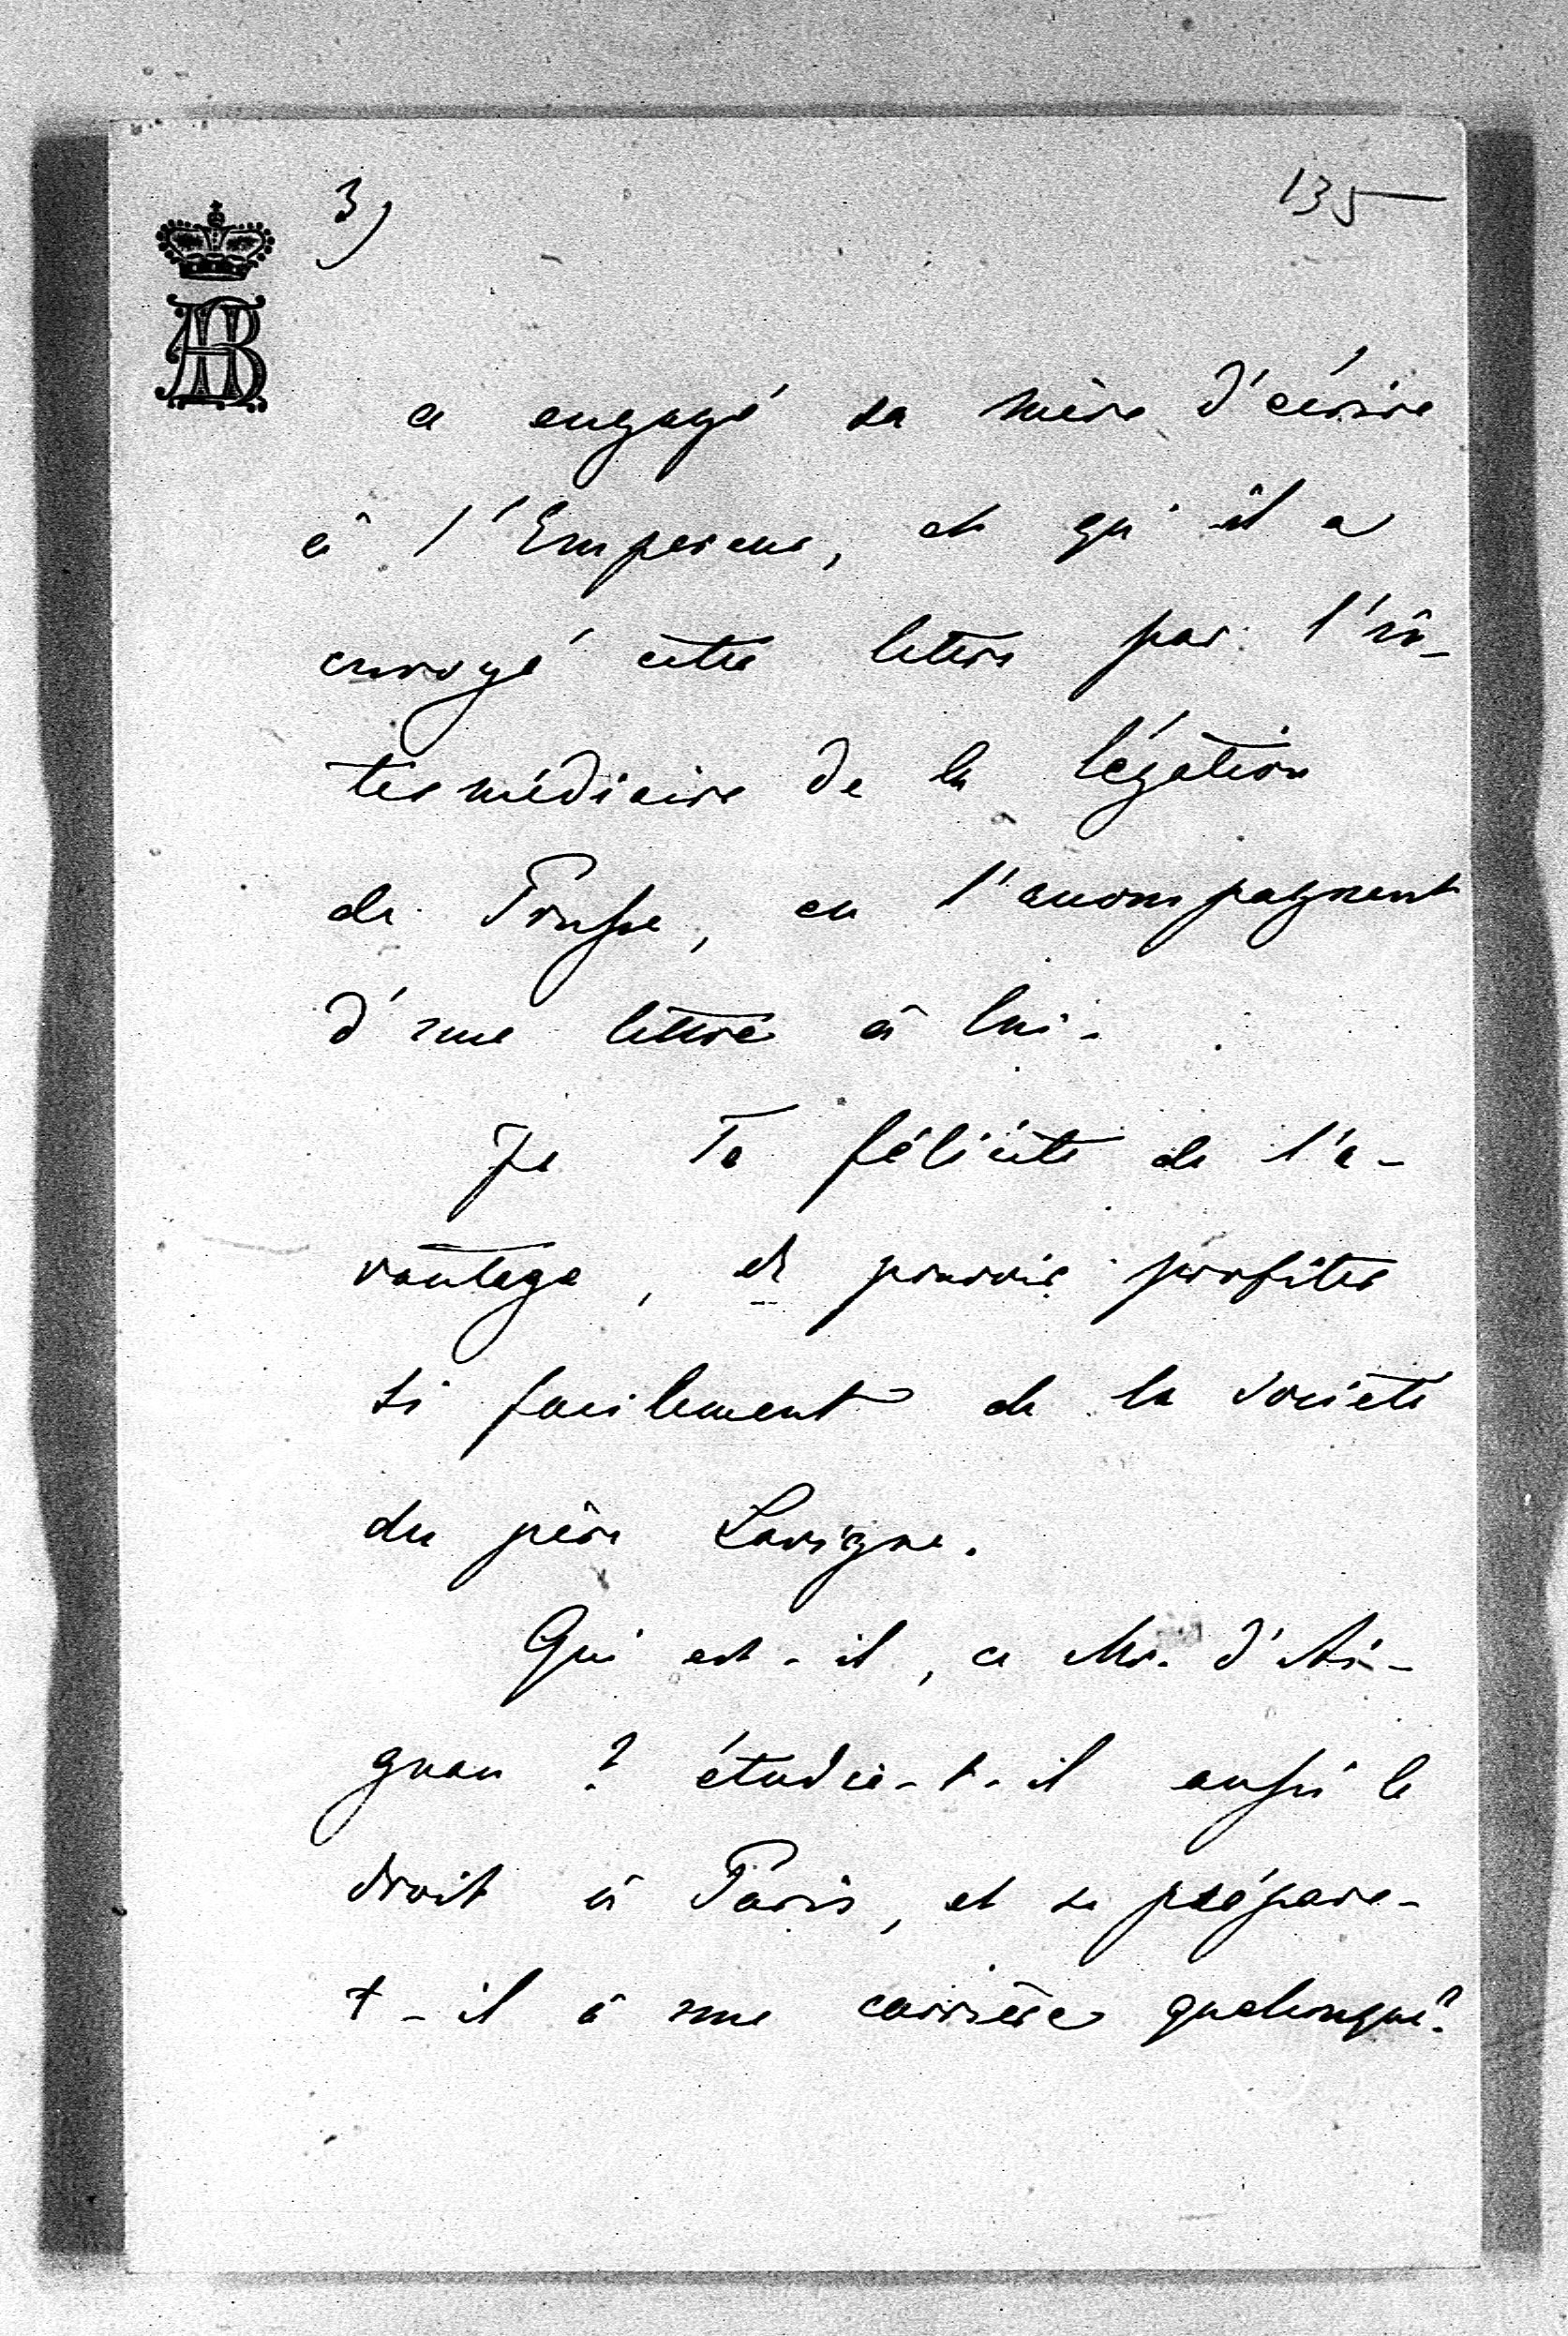 3)
135
AB
a engagé sa mère d'écrire
à l'Empereur, et qu'il a
envoyé cette lettre par l'in-
termédiaire de la légation
de Prusse, en l'accompagnant
d'une lettre à lui.
Je Te félicite de l'a-
vantage, de pouvoir profiter
si facilement de la société
du père Lavigne.
Qui est-il, ce Mr. d'Ai-
gnan ? étudie-t-il aussi le
droit à Paris, et se prépare-
t-il à une carrière quelconque?